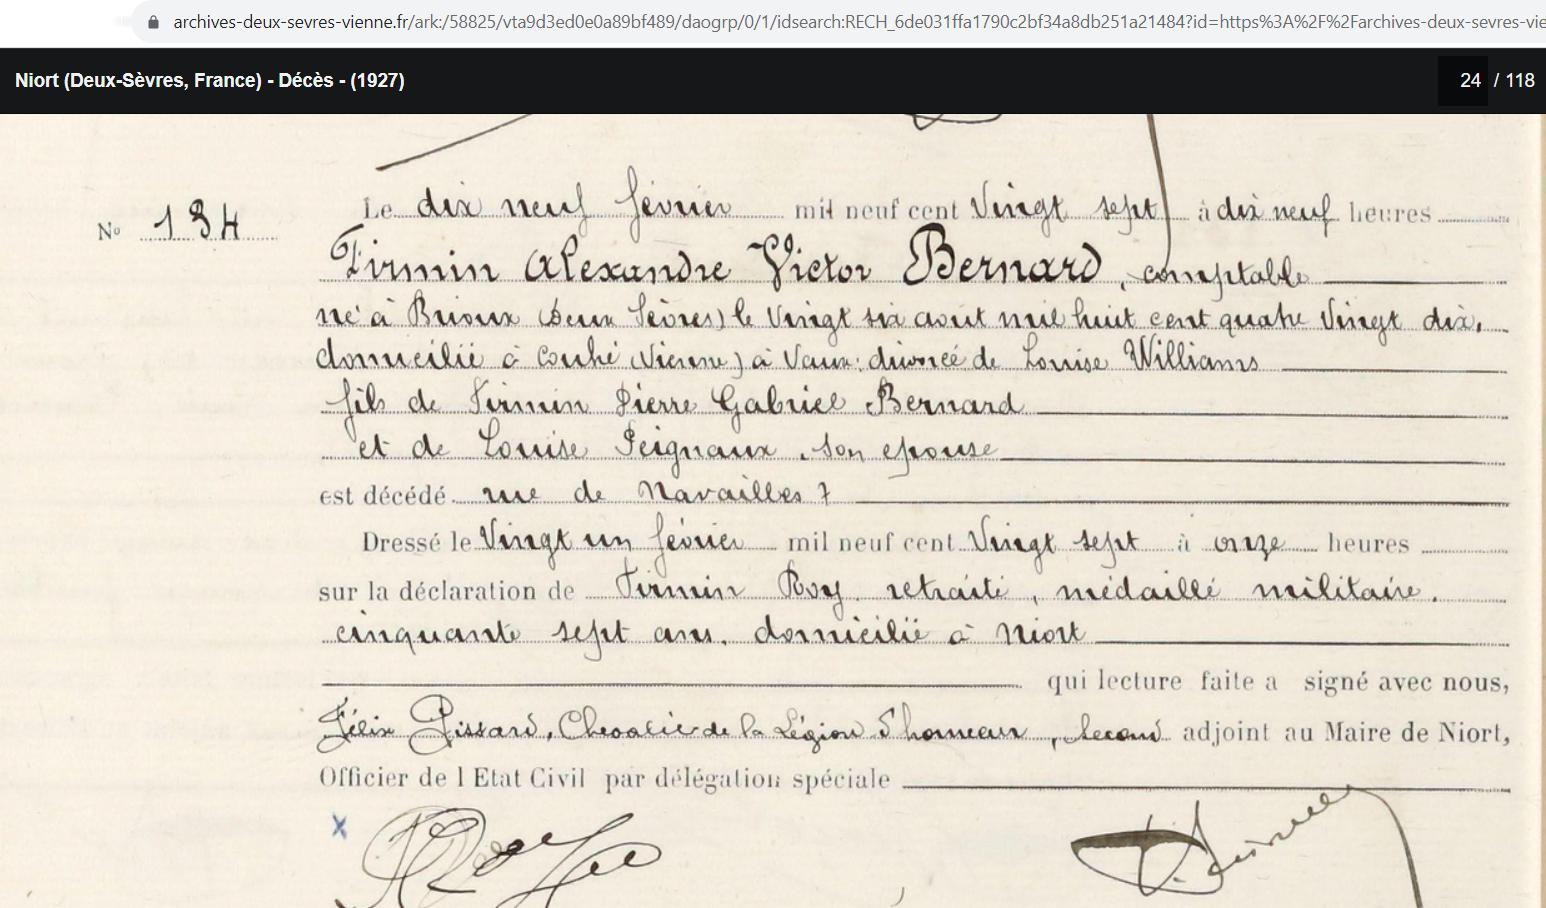 archives-deux-sevres-vienne.fr/ark:/58825/vta9d3ed0e0a89bf489/daogrp/0/1/idsearch:RECH_6de031ffa1790c2bf34a8db251a21484?id=https%3A%2F%2Farchives-deux-sevres-vie
Niort (Deux-Sèvres, France) - Décès - (1927) 24 / 118
Le dix neuf février mil neuf cent Vingt sept à dix neuf heures
No 134
Firmin Alexandre Victor Bernard, comptable
né à Brioux (Deux Sèvres) le Vingt six aout mil huit cent quatre Vingt dix,
domicilié à Couhé (Vienne) à Vaux: divorcé de Louise Williams
fils de Firmin Pierre Gabriel Bernard
et de Louise Peignaux, son epouse
est décédé rue de Navailles 7
Dressé le Vingt un février mil neuf cent Vingt sept à onze heures
sur la déclaration de Firmin Roy, retraité, médaillé militaire.
cinquante sept ans, domicilié à Niort
qui lecture faite a signé avec nous,
Félix Gissard, Chevalier de la Légion d'honneur, second adjoint au Maire de Niort,
Officier de l Etat Civil par délégation spéciale
x